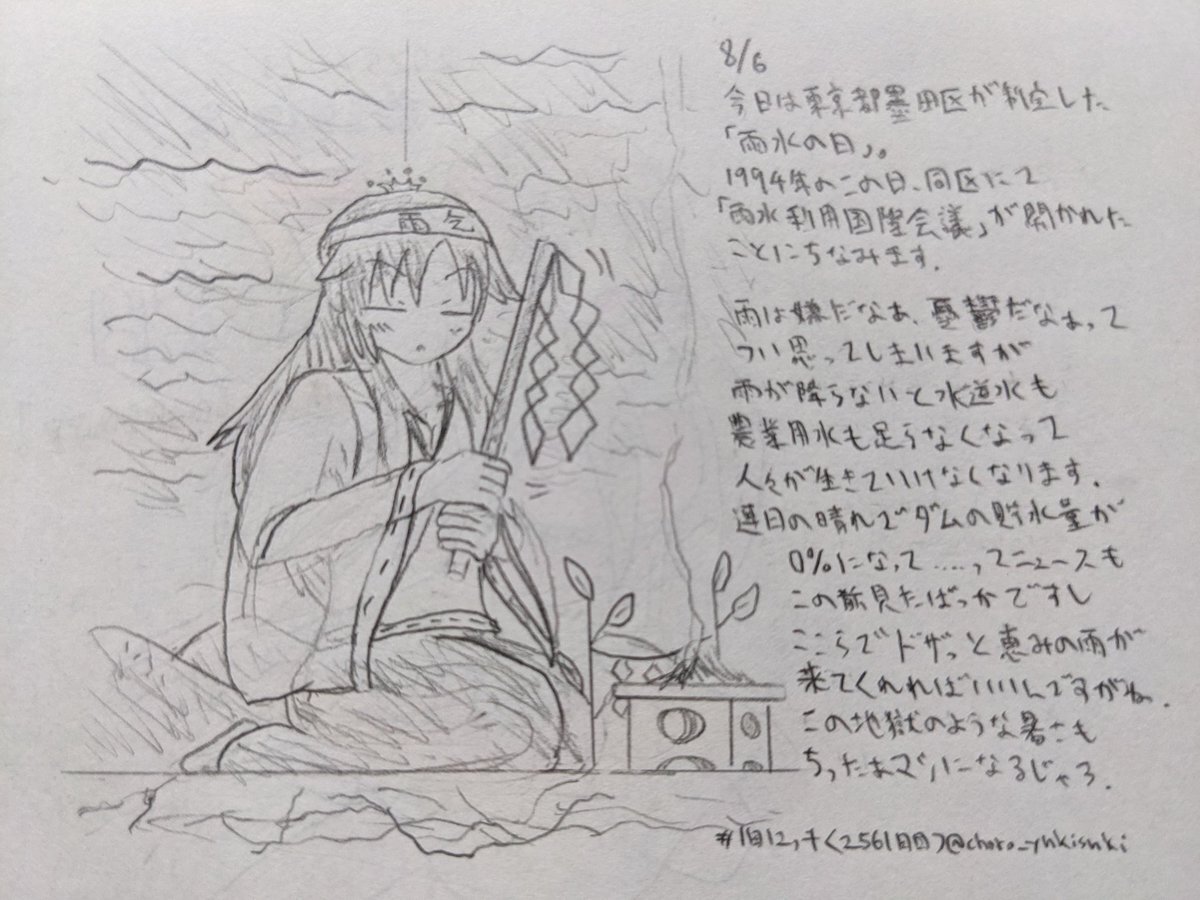 雨乞
8/6
今日は東京都墨田区が制定した
「雨水の日」。
1994年のこの日、同区にて
「雨水利用国際会議」が開かれた
ことにちなみます。
雨は嫌だなぁ、憂鬱だなぁって
つい思ってしまいますが
雨が降らないと水道水も
農業用水も足らなくなって
人々が生きていけなくなります。
連日の晴れでダムの貯水量が
0%になって……ってニュースも
この前見たばっかですし
ここらでドザっと恵みの雨が
来てくれればいいんですがね。
この地獄のような暑さも
ちったぁマシになるじゃろ。
#1日1マキ(2561日目)@choro_yukisuki